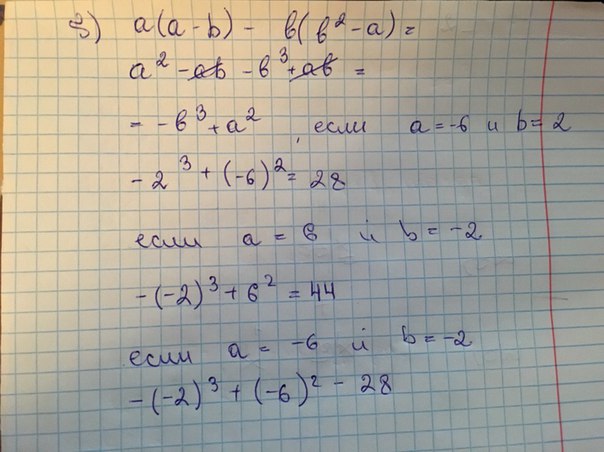 б) a(a-b) - в(в²-a)=
a² - ab - в³ + ab =
= -в³+a², если a=-6 и b=2
-2³+(-6)²= 28
если a = 6 и b = -2
-(-2)³+6²=44
если a = -6 и b=-2
-(-2)³ + (-6)² - 28